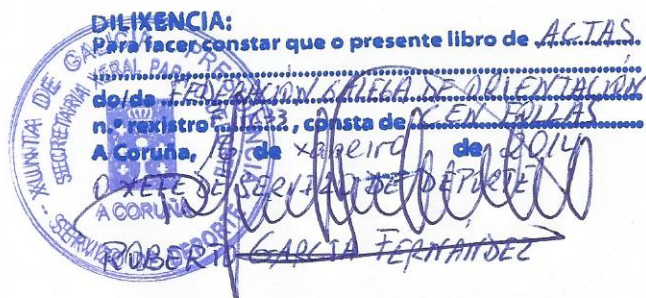 DILIXENCIA:
Para facer constar que o presente libro de ACTAS
do/da FEDERACIÓN GALEGA DE ORIENTACIÓN
n.º rexistro, consta de CEN FOLLAS
A Coruña, de xaneiro de 2014
O XEFE DE SERVIZO DE DEPORTE
ROBERTO GARCIA FERNANDEZ
XUNTA DE GALICIA
SECRETARÍA XERAL PARA
SERVIZO DE DEPORTE
A CORUÑA